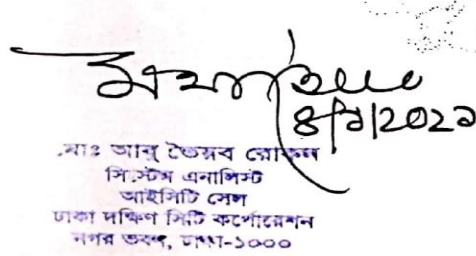 ৪/৯/2022
মোঃ আবু তৈয়ব রোকন
সিস্টেম এনালিস্ট
আইসিটি সেল
ঢাকা দক্ষিণ সিটি কর্পোরেশন
নগর ভবন, ঢাকা-১০০০